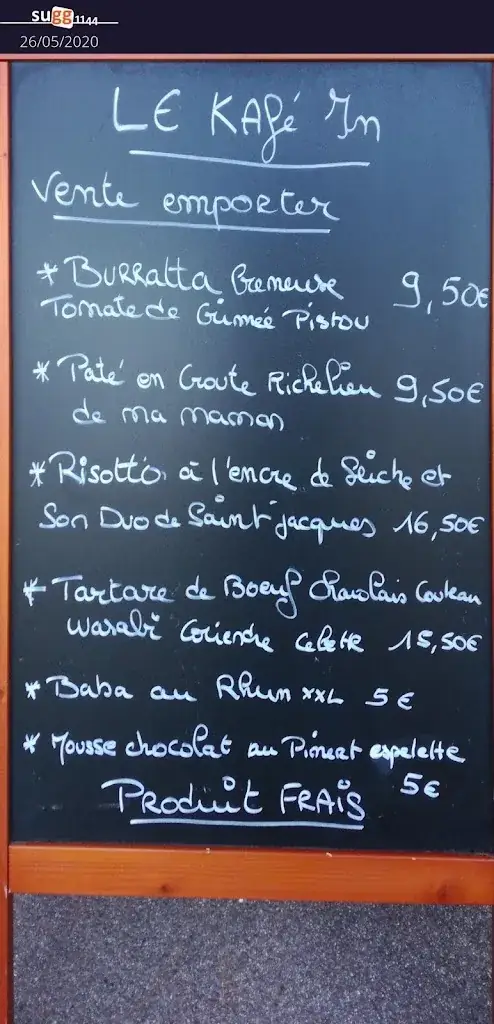 sugg1144
26/05/2020
LE KAfé In
Vente emporter
* BURRatta Cremeuse 9,50€
Tomate de Guimée Pistou
* Paté en Croute Richelieu 9,50€
de ma maman
* Risotto à l'encre de Seiche et
Son Duo de Saint jacques 16,50€
* Tartare de Boeuf Charolais Couteau
Wasabi Coriendre Cebette 15,50€
* Baba au Rhum XXL 5€
* Mousse chocolat au Piment espelette
5€
PRoduit FRAiS